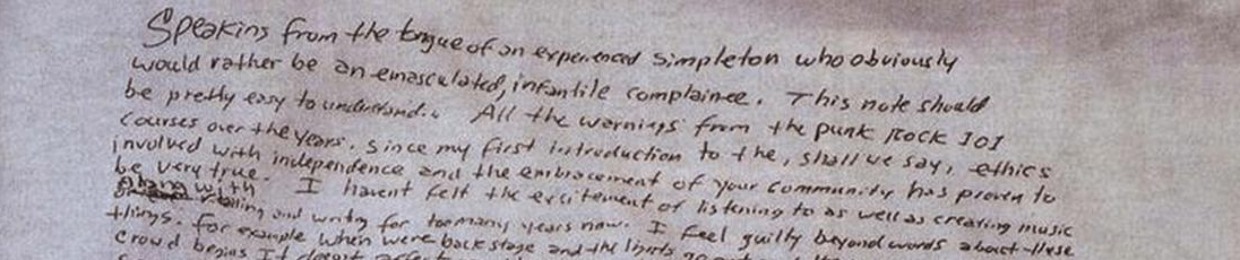 Speaking from the tongue of an experienced simpleton who obviously
would rather be an emasculated, infantile complainee. This note should
be pretty easy to understand. All the warnings from the punk rock 101
courses over the years. Since my first introduction to the, shall we say, ethics
involved with independence and the embracement of your community has proven to
be very true. I havent felt the excitement of listening to as well as creating music
along with and writing for too many years now. I feel guilty beyond words about these
things. for example when were backstage and the lights go out and the
crowd begins It doesnt affect